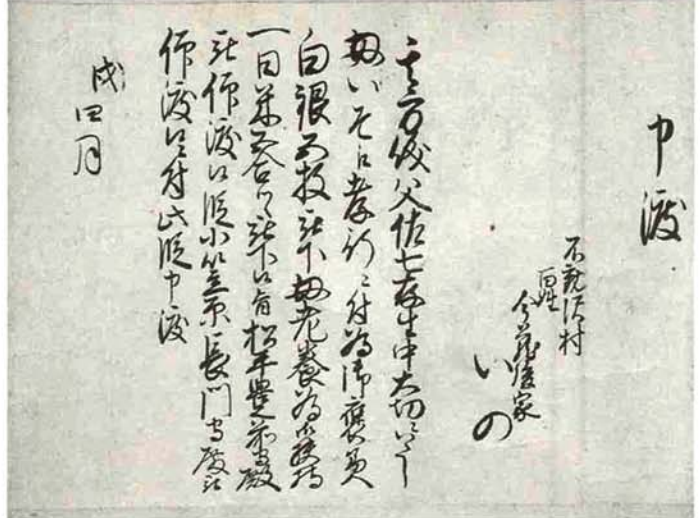 申渡
不動沢村
百姓
今蔵後家
いの
其方儀父佐七存生中大切ニいたし
母いそ江孝行ニ付為御褒美
白銀五枚被下母老養為御扶持
一日米五合ツヽ被下候旨松平豊前守殿
被仰渡候段小笠原長門守殿被
仰渡候ニ付此段申渡
戌四月